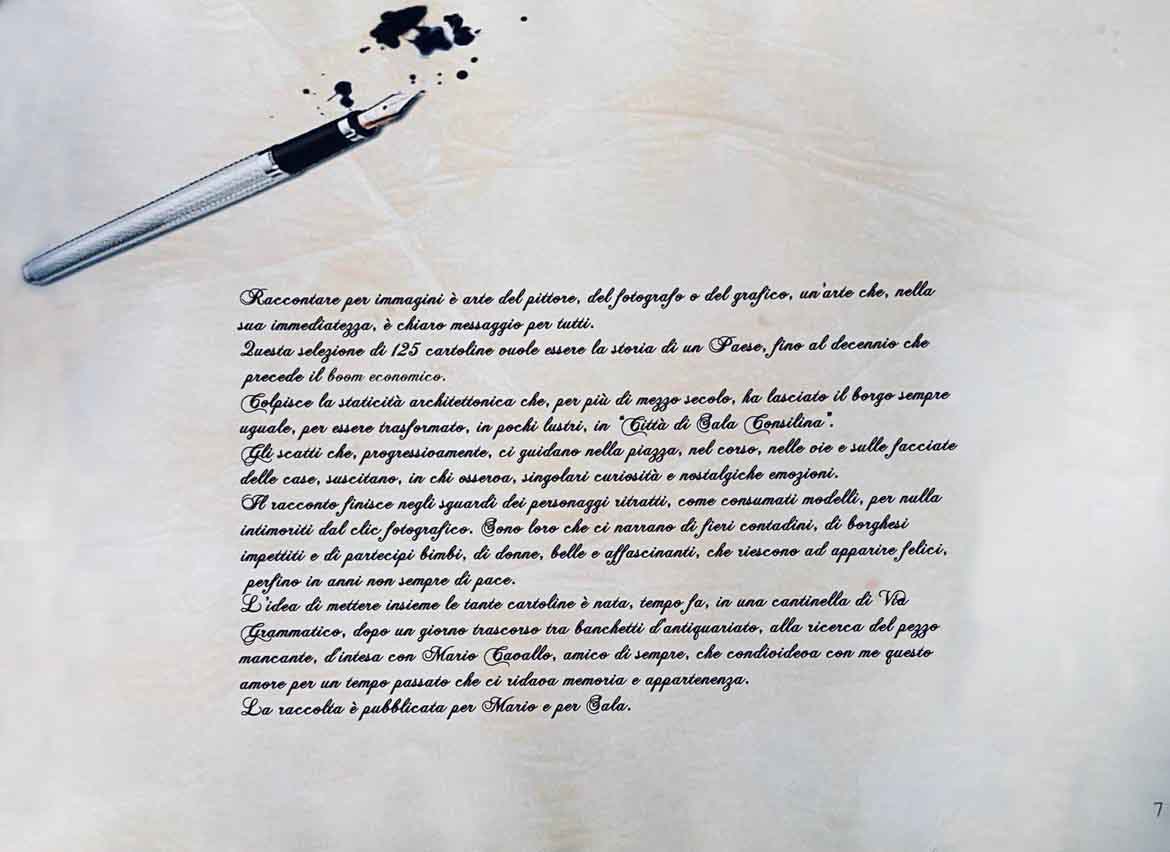 Raccontare per immagini è arte del pittore, del fotografo o del grafico, un'arte che, nella
sua immediatezza, è chiaro messaggio per tutti.
Questa selezione di 125 cartoline vuole essere la storia di un Paese, fino al decennio che
precede il boom economico.
Colpisce la staticità architettonica che, per più di mezzo secolo, ha lasciato il borgo sempre
uguale, per essere trasformato, in pochi lustri, in "Città di Sala Consilina".
Gli scatti che, progressivamente, ci guidano nella piazza, nel corso, nelle vie e sulle facciate
delle case, suscitano, in chi osserva, singolari curiosità e nostalgiche emozioni.
Il racconto finisce negli sguardi dei personaggi ritratti, come consumati modelli, per nulla
intimoriti dal clic fotografico. Sono loro che ci narrano di fieri contadini, di borghesi
impettiti e di partecipi bimbi, di donne, belle e affascinanti, che riescono ad apparire felici,
perfino in anni non sempre di pace.
L'idea di mettere insieme le tante cartoline è nata, tempo fa, in una cantinella di Via
Grammatico, dopo un giorno trascorso tra banchetti d'antiquariato, alla ricerca del pezzo
mancante, d'intesa con Mario Cavallo, amico di sempre, che condivideva con me questo
amore per un tempo passato che ci ridava memoria e appartenenza.
La raccolta è pubblicata per Mario e per Sala.
7